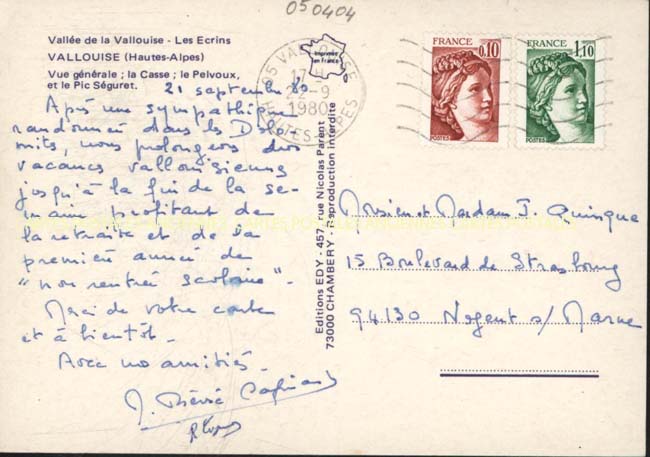 050404
Vallée de la Vallouise - Les Ecrins
VALLOUISE (Hautes-Alpes)
Vue générale ; la Casse ; le Pelvoux,
et le Pic Séguret.
21 septembre 80
Après une sympathique
randonnée dans les Dolo-
mites, nous prolongeons des
vacances vallouisiennes
jusqu'à la fin de la se-
maine profitant de
la retraite et de la
première année de
"non rentrée scolaire".
Merci de votre carte
et à bientôt.
Avec nos amitiés.
Editions EDY - 457, rue Nicolas Parent
73000 CHAMBERY - Reproduction interdite
Imprimée
en France
05 VALLOUISE
17 H
22-9
1980
HAUTES ALPES
FRANCE
0,10
POSTES
FRANCE
1,10
POSTES
Monsieur et Madame J. Quinque
15 Boulevard de Strasbourg
94130 Nogent s/ Marne